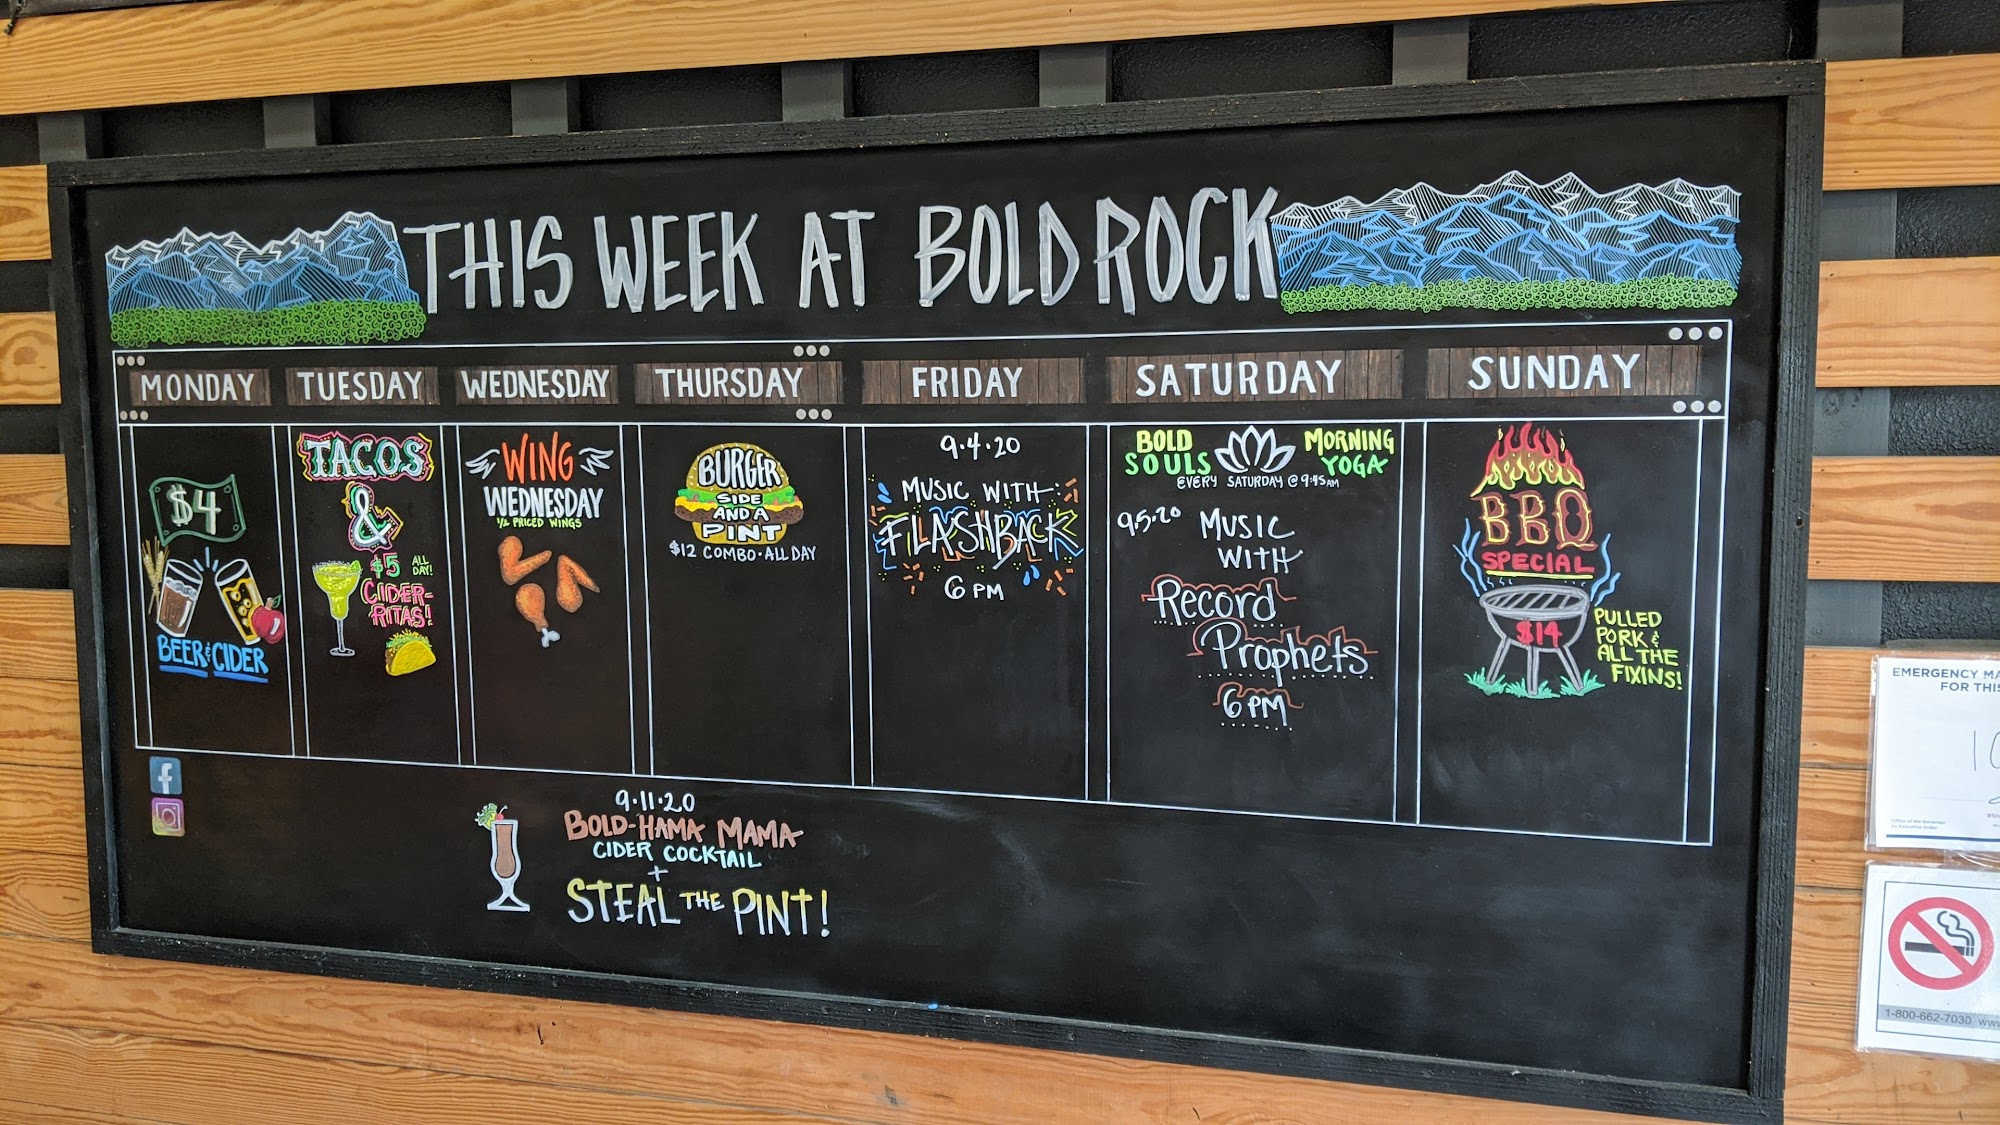 THIS WEEK AT BOLD ROCK
MONDAY
TUESDAY
WEDNESDAY
THURSDAY
FRIDAY
SATURDAY
SUNDAY
$4
BEER & CIDER
TACOS
&
$5 ALL DAY!
CIDER-
RITAS!
WING
WEDNESDAY
1/2 PRICED WINGS
BURGER
SIDE
AND A
PINT
$12 COMBO · ALL DAY
9.4.20
MUSIC WITH:
FLASHBACK
6 PM
BOLD SOULS
MORNING YOGA
EVERY SATURDAY @ 9:45 AM
9.5.20
MUSIC
WITH
Record
Prophets
6 PM
BBQ
SPECIAL
$14
PULLED
PORK &
ALL THE
FIXINS!
9.11.20
BOLD-HAMA MAMA
CIDER COCKTAIL
+
STEAL THE PINT!
EMERGENCY
FOR THIS
Office of the Governor
by Executive Order
1-800-662-7030 www